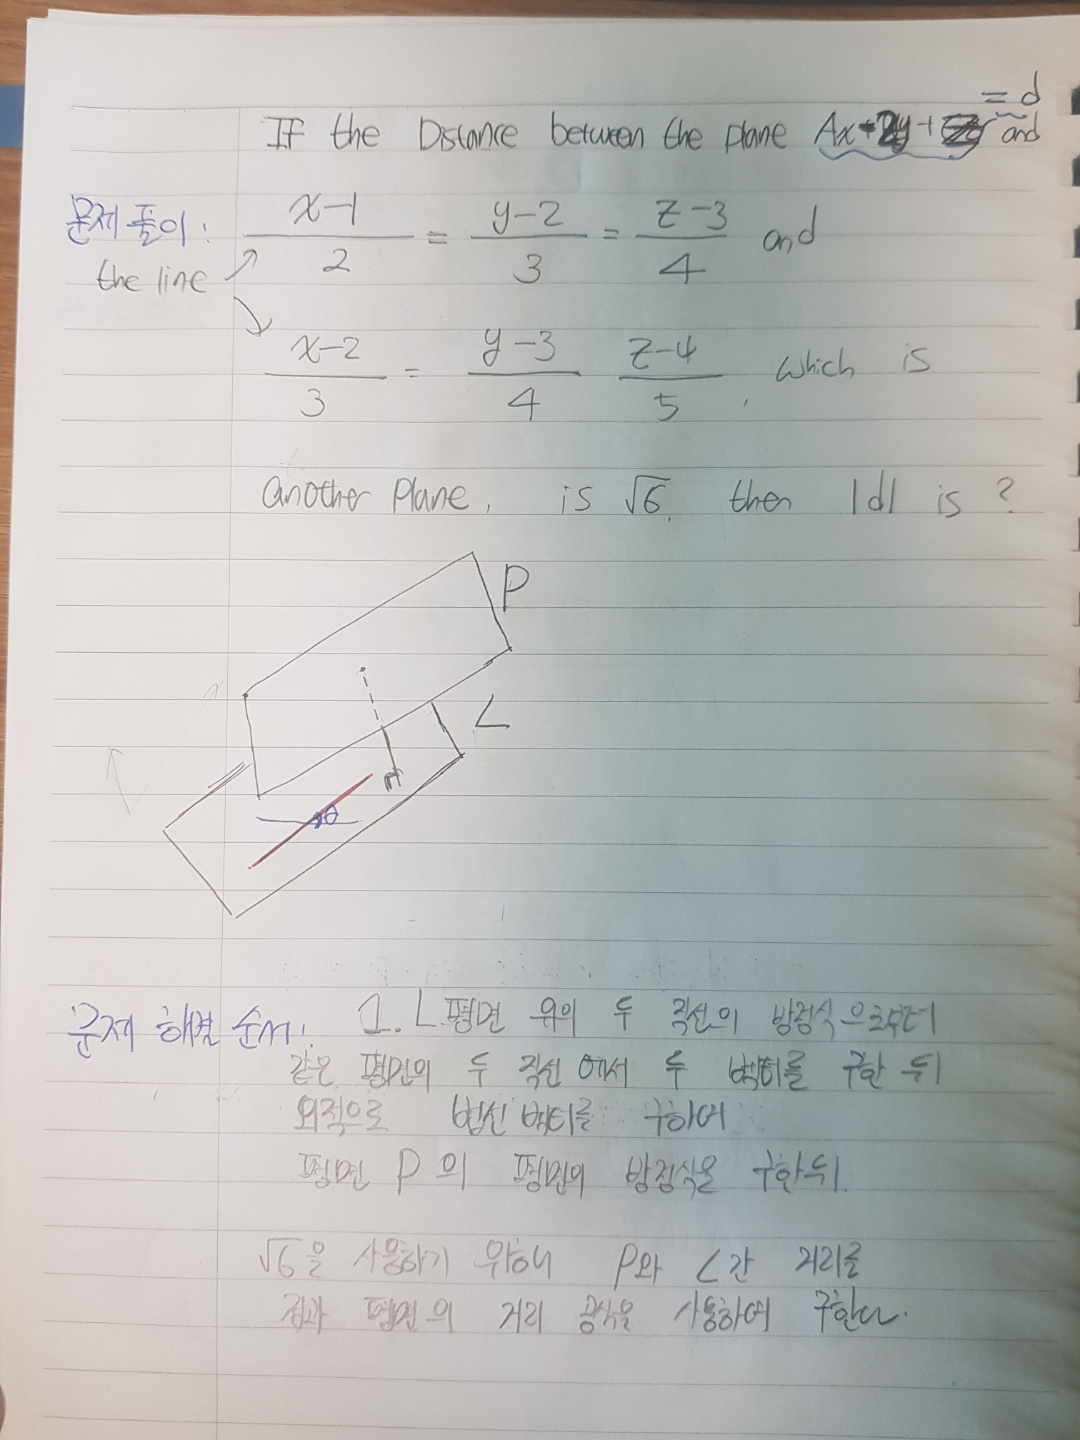 = d
If the Distance between the plane Ax-2y+z and
문제 풀이: x-1/2 = y-2/3 = z-3/4 and
the line
x-2/3 = y-3/4 z-4/5, which is
another plane, is √6, then |d| is ?
P
L
θ
문제 해결 순서: 1. L 평면 위의 두 직선의 방정식으로부터
같은 평면의 두 직선에서 두 벡터를 구한 뒤
외적으로 법선벡터를 구하여
평면 P의 평면의 방정식을 구한 뒤.
√6을 사용하기 위하여 P와 L간 거리를
점과 평면의 거리 공식을 사용하여 구한다.